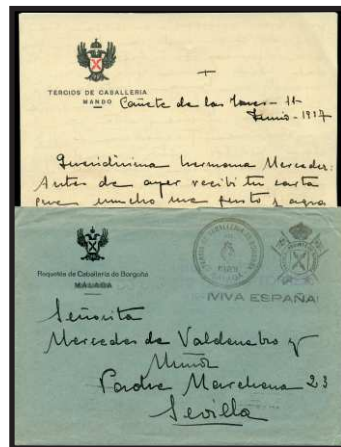 TERCIOS DE CABALLERIA
MANDO
Cañete de las Torres - 11
Junio - 1937
Queridísima hermana Mercedes:
Antes de ayer recibí tu carta
que mucho me gustó y
Requetés de Caballería de Borgoña
MALAGA
¡VIVA ESPAÑA!
Señorita
Mercedes de Valdenebro y
Muñoz
Padre Marchena 23
Sevilla